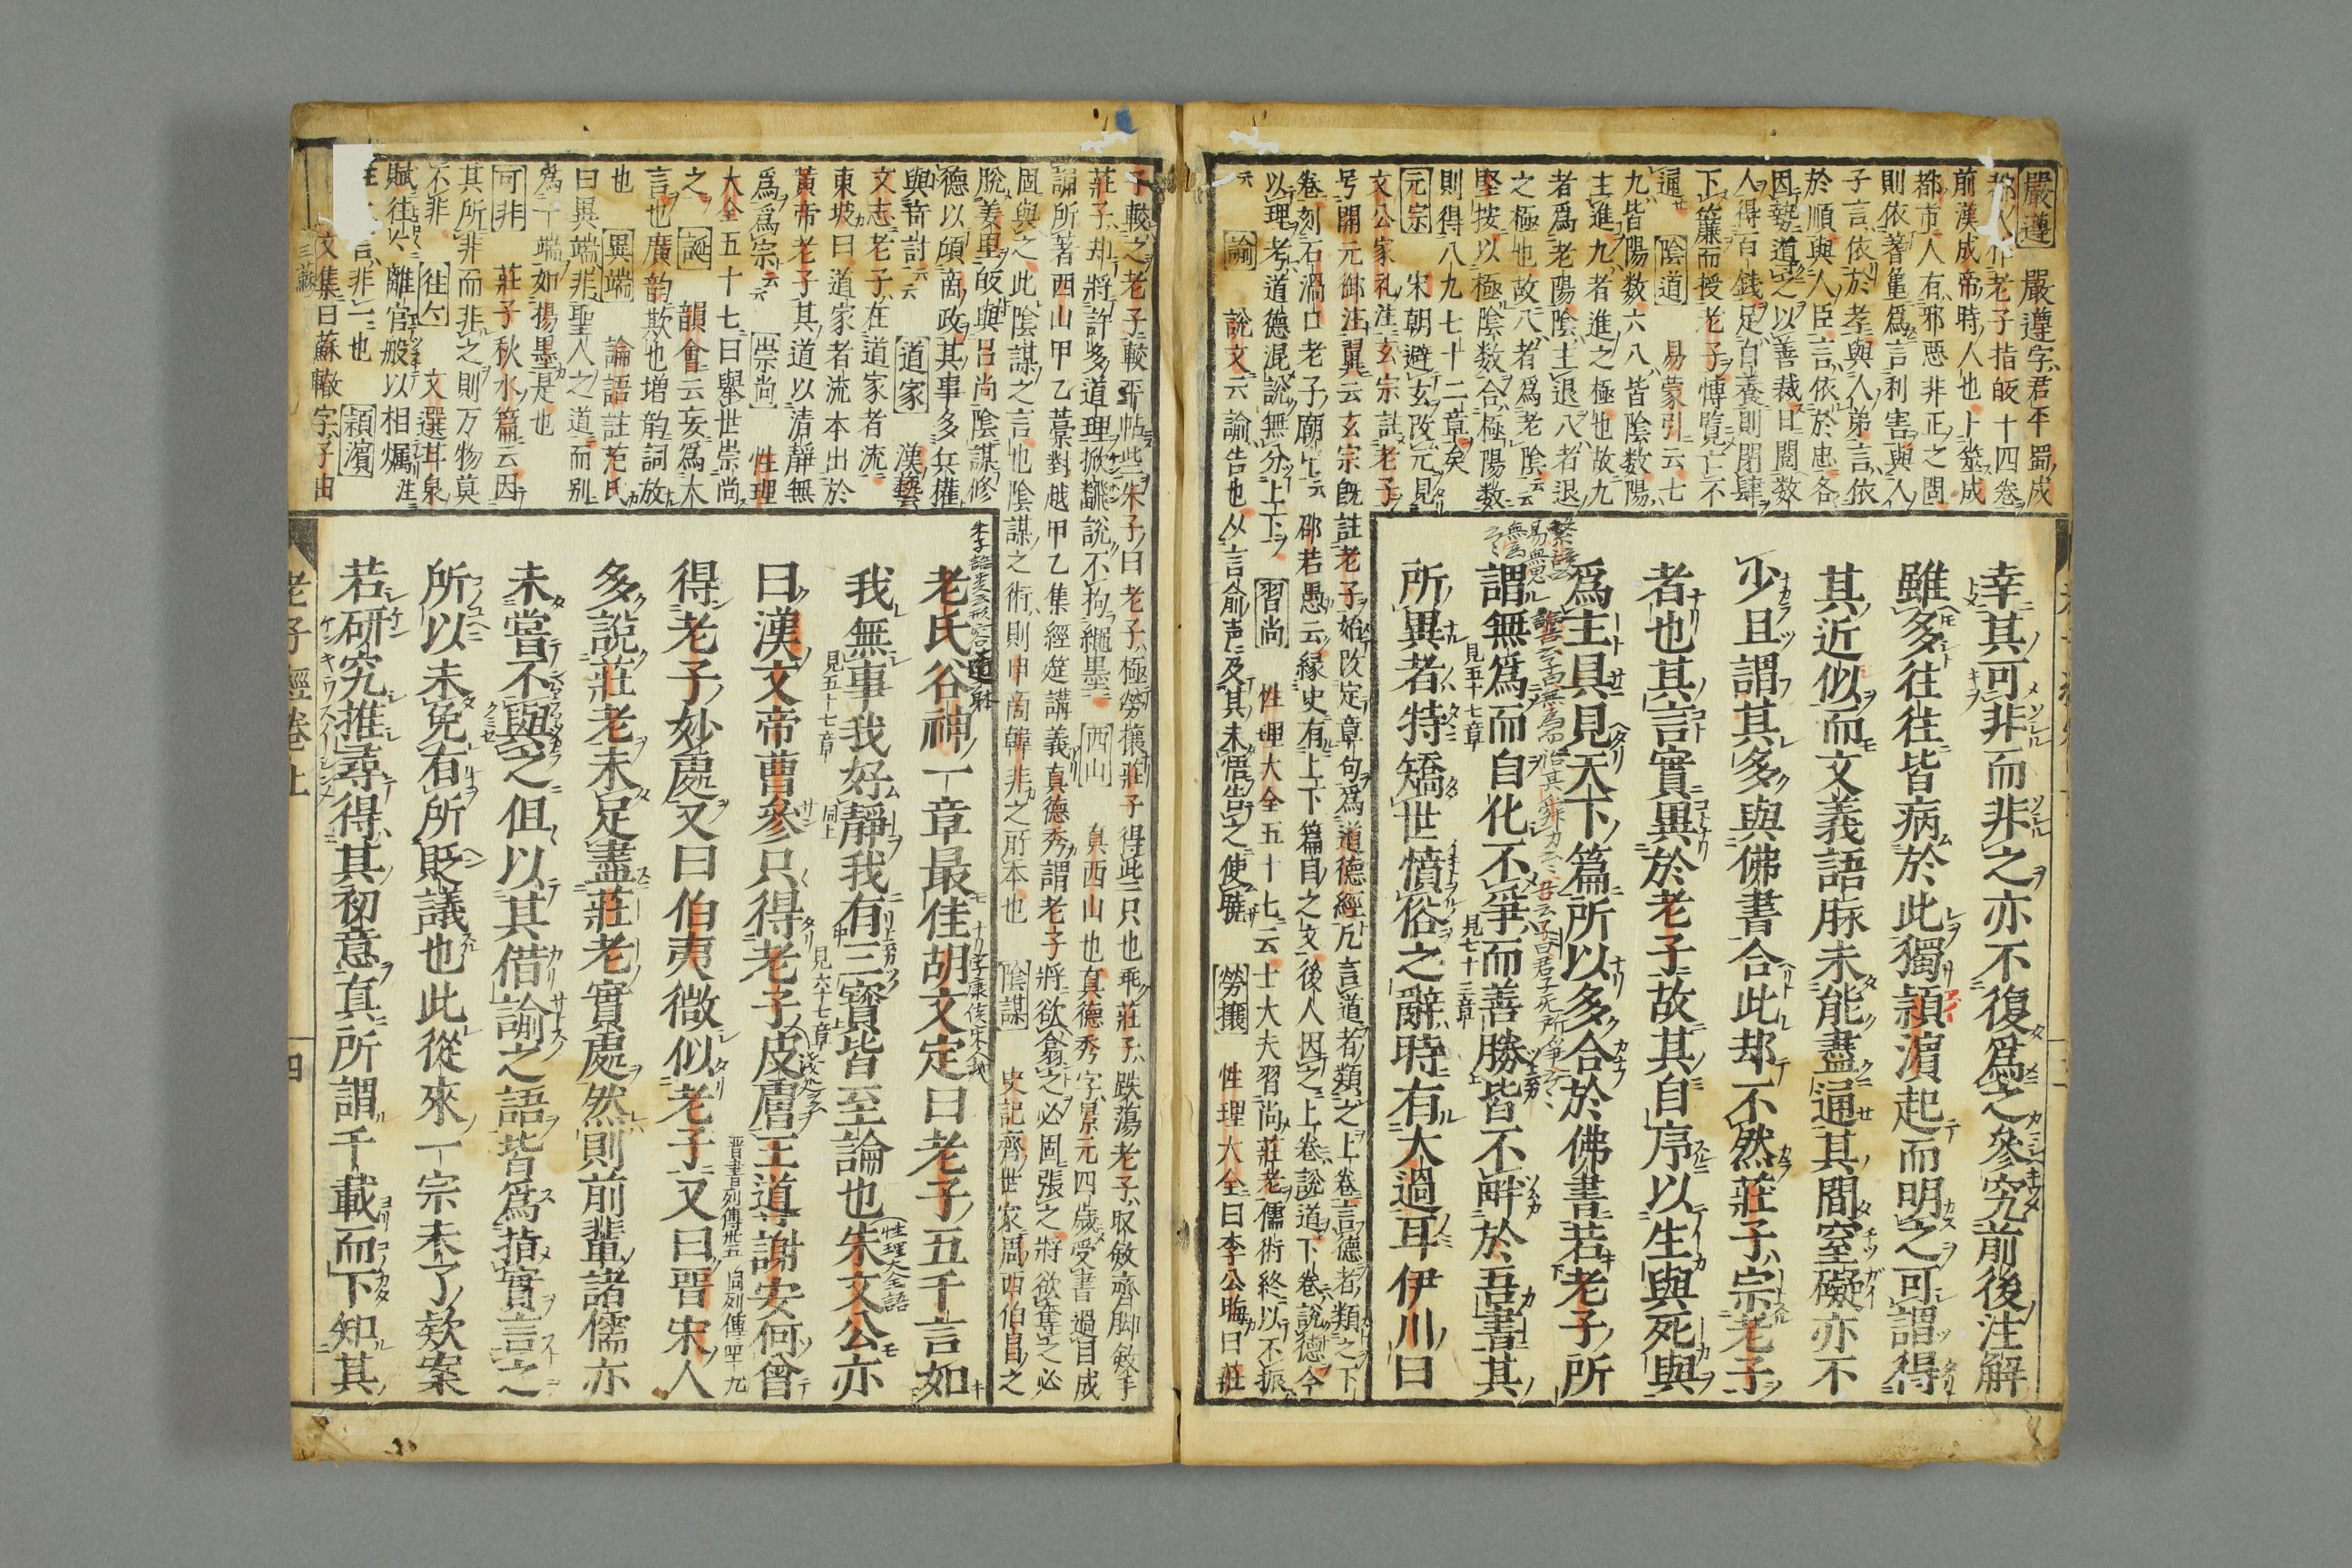 嚴遵 嚴遵字君平蜀成
都人作老子指皈十四卷
前漢成帝時人也卜筮成
都市人有邪惡非正之問
則依蓍亀爲言利害與人
子言依於孝與人弟言依
於順與人臣言依於忠各
因勢道之以善裁日閲数
人得百銭足自養則閉肆
下簾而授老子愽覽亡不
通世 陰道 易蒙引云七
九皆陽数六八皆陰数陽
主進九者進之極也故九
者爲老陽陰主退八者退
之極也故八者爲老陰云云
堅按以極陰数合極陽数
則得八九七十二章矣
元宗 宋朝避玄改元見
文公家礼注玄宗註老子
号開元御注翼云玄宗既註老子始改定章句爲道德經凢言道者類之上卷言德者類之下
卷刻石渦口老子廟乍云 邵若愚云縁史有上下篇自之文後人因之上卷說道下卷說德今
以理考道德混說無分上下 習尚 性理大全五十七云士大夫習尚莊老儒術終以不振
云 諭 說文云諭告也从言俞声及其未悟告之使曉 勞攘 性理大全曰李公晦曰莊
幸其可非而非之亦不復爲之參究前後注解
雖多往往皆病於此獨頴濵起而明之可謂得
其近似而文義語脉未能盡通其間窒礙亦不
少且謂其多與佛書合此却不然莊子宗老子
者也其言實異於老子故其自序以生與死與
爲主具見天下篇所以多合於佛書若老子所
謂無爲而自化不爭而善勝皆不畔於吾書其
所異者特矯世憤俗之辭時有大過耳伊川曰
見五十七章
見七十三章
子較之老子較平帖些朱子曰老子極勞攘莊子得些只也乖莊子跌蕩老子収斂齊脚斂手
莊子却將許多道理掀飜說不拘繩墨 西山 真西山也真德秀字景元四歲受書過目成
誦所著西山甲乙藁對越甲乙集經筵講義真德秀謂老子將欲翕之必固張之將欲奪之必
固與之此陰謀之言也陰謀之術則申商韓非之所本也 陰謀 史記齊世家周西伯自之
脫羑里皈與呂尚陰謀修
德以傾商政其事多兵權
與竒計云云 道家 漢藝
文志老子在道家者流
東坡曰道家者流本出於
黄帝老子其道以清靜無
爲爲宗云云 崇尚 性理
大全五十七曰舉世崇尚
之 誕 韻會云妄爲大
言也廣韵欺也増韵詞放
也 異端 論語註范氏
曰異端非聖人之道而别
爲一端如楊墨是也
可非 莊子秋水篇云因
其所非而非之則万物莫
不非 往仝 文選甘泉
賦往仝離宮般以相燭注
言非一也 頴濵
文集曰蘇轍字子由
老氏谷神一章最佳胡文定曰老子五千言如
我無事我好靜我有三寳皆至論也朱文公亦
曰漢文帝曹參只得老子皮膚王導謝安何曾
得老子妙處又曰伯夷微似老子又曰晋宋人
多說莊老未足盡莊老實處然則前輩諸儒亦
未嘗不與之但以其借諭之語皆爲指實言之
所以未免有所貶議也此從來一宗未了欵案
若研究推尋得其初意真所謂千載而下知其
見五十七章
同上
見六十七章
性理大全語
晋書列傳卅五 同列傳四十九
老子經卷上
四